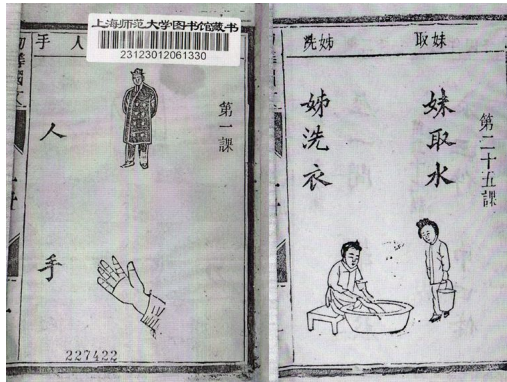 手 人
上海师范大学图书馆藏书
23123012061330
第一課
人
手
227422
洗 姊 取 妹
第二十五課
妹取水
姊洗衣